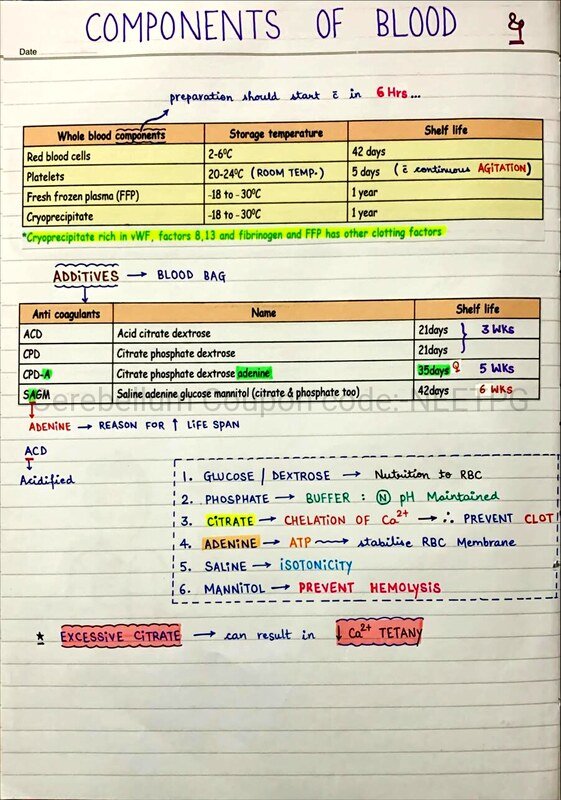 COMPONENTS OF BLOOD
Date
preparation should start c̄ in 6 Hrs...
Whole blood components Storage temperature Shelf life
Red blood cells 2-6°C 42 days
Platelets 20-24°C (ROOM TEMP.) 5 days (c̄ continuous AGITATION)
Fresh frozen plasma (FFP) -18 to -30°C 1 year
Cryoprecipitate -18 to -30°C 1 year
*Cryoprecipitate rich in vWF, factors 8,13 and fibrinogen and FFP has other clotting factors
ADDITIVES → BLOOD BAG
Anti coagulants Name Shelf life
ACD Acid citrate dextrose 21days
CPD Citrate phosphate dextrose 21days } 3 WKs
CPD-A Citrate phosphate dextrose adenine 35days 5 WKs
SAGM Saline adenine glucose mannitol (citrate & phosphate too) 42days 6 WKs
Cerebellum Coupon code: NEETPG
ADENINE → REASON FOR ↑ LIFE SPAN
ACD
↓
Acidified
1. GLUCOSE / DEXTROSE → Nutrition to RBC
2. PHOSPHATE → BUFFER : Ⓝ pH Maintained
3. CITRATE → CHELATION OF Ca²⁺ → ∴ PREVENT CLOT
4. ADENINE → ATP ⟿ stabilise RBC Membrane
5. SALINE → ISOTONICITY
6. MANNITOL → PREVENT HEMOLYSIS
* EXCESSIVE CITRATE → can result in ↓ Ca²⁺ TETANY